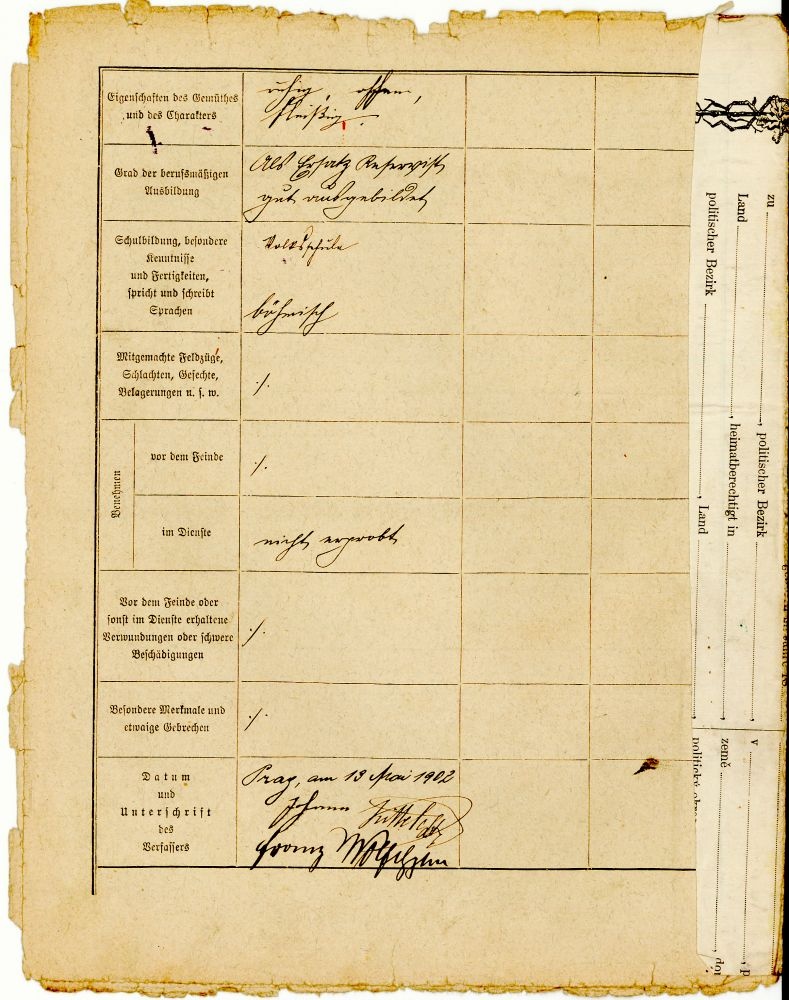 Eigenschaften des Gemüthes
und des Charakters
ruhig, offen,
fleißig.
Grad der berufsmäßigen
Ausbildung
Als Ersatz Reservist
gut ausgebildet
Schulbildung, besondere
Kenntnisse
und Fertigkeiten,
spricht und schreibt
Sprachen
Volksschule
böhmisch
Mitgemachte Feldzüge,
Schlachten, Gefechte,
Belagerungen u. s. w.
./.
Benehmen
vor dem Feinde
./.
im Dienste
nicht erprobt
Vor dem Feinde oder
sonst im Dienste erhaltene
Verwundungen oder schwere
Beschädigungen
./.
Besondere Merkmale und
etwaige Gebrechen
./.
Datum
und
Unterschrift
des
Verfassers
Prag, am 13 Mai 1902
Johann
Franz
zu , politischer Bezirk
Land , heimatberechtigt in
politischer Bezirk , Land
v
země